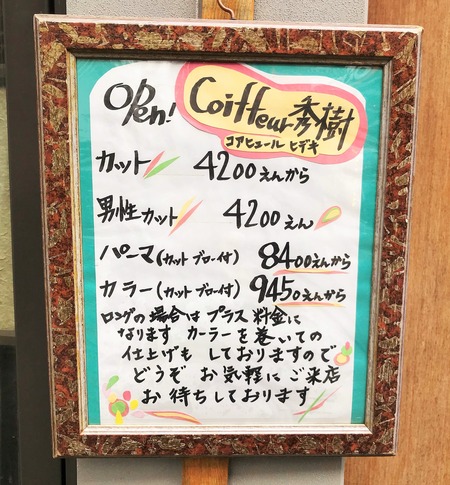 Open! Coiffeur秀樹
コアヒュール ヒデキ
カット 4200えんから
男性カット 4200えん
パーマ(カットブロー付) 8400えんから
カラー(カットブロー付) 9450えんから
ロングの場合は プラス料金に
なります カーラーを巻いての
仕上げも しておりますので
どうぞ お気軽に ご来店
お待ちしております